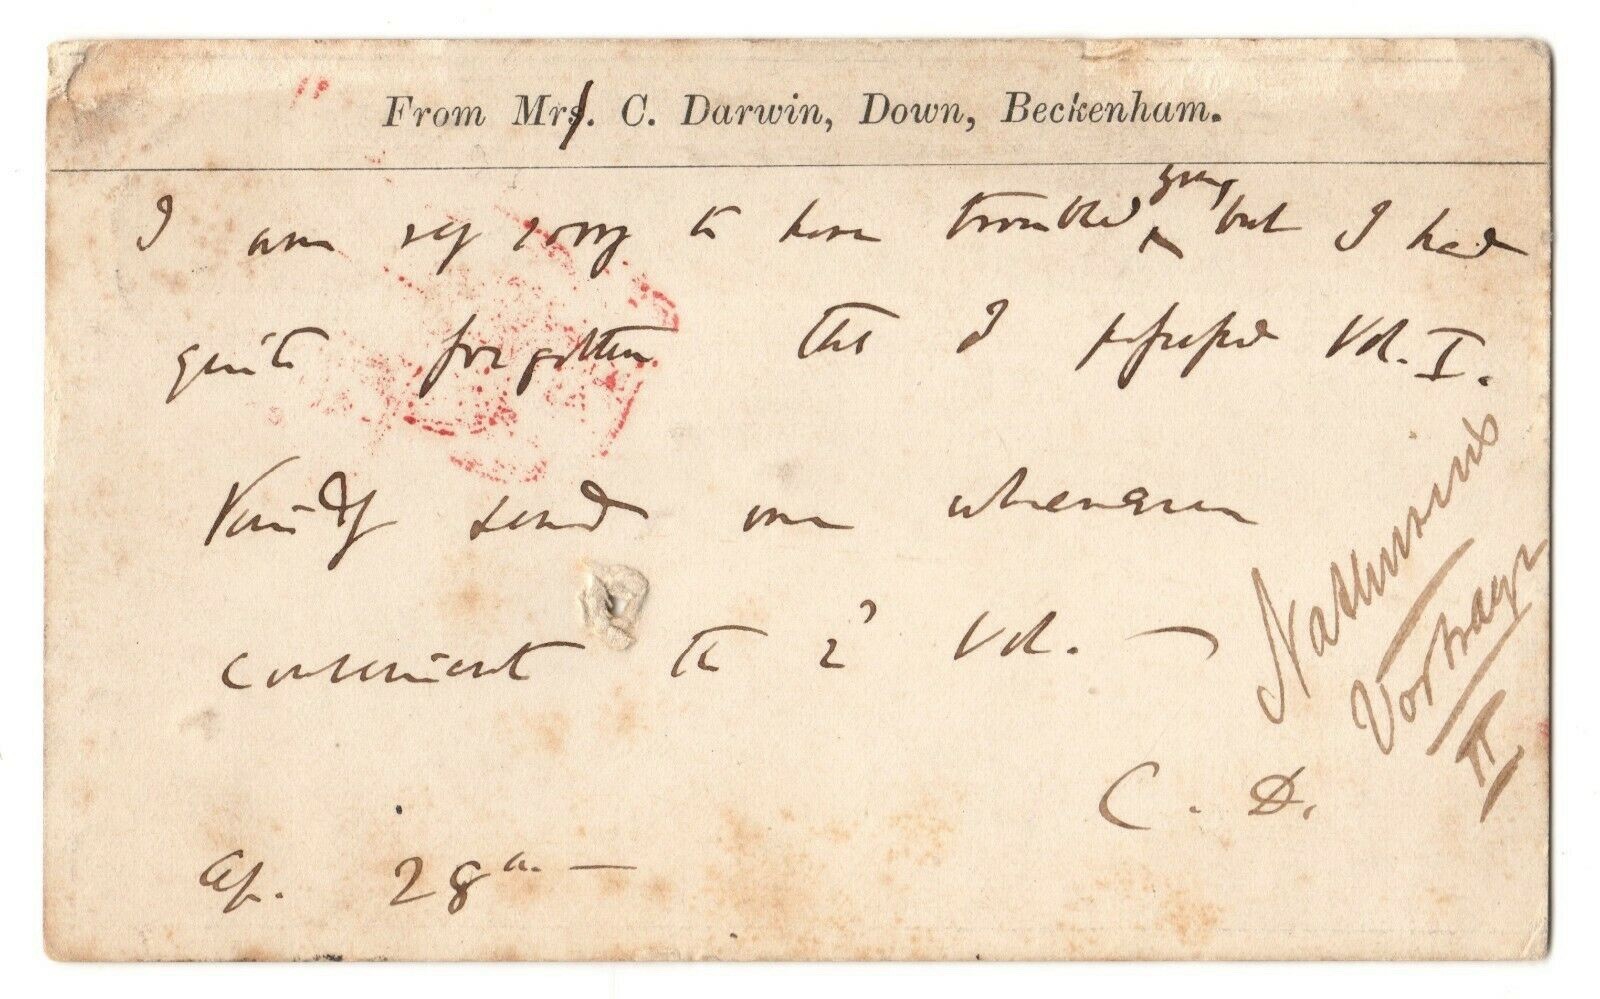 From Mrs. C. Darwin, Down, Beckenham.
I am very sorry to have troubled you, but I had
quite forgotten that I possessed Vol. I.
Kindly send me whenever
convenient the 2d Vol. —
C. D.
Ap. 28th. —
Nathusius
Vorträge
II